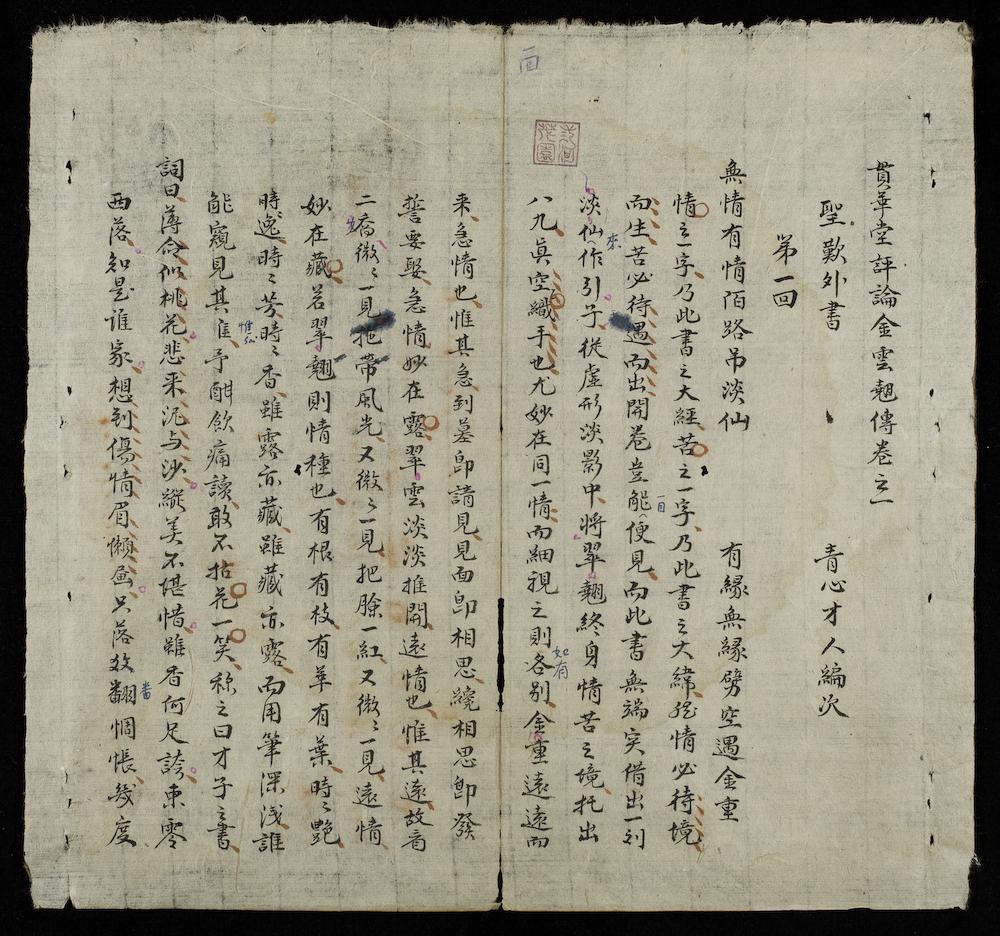 貫華堂評論金雲翹傳卷之一
聖歎外書 青心才人編次
第一回
無情有情陌路吊淡仙 有緣無緣劈空遇金重
情之一字乃此書之大經苦之一字乃此書之大緯然情必待境
而生苦必待遇而出開卷豈能便見而此書無端突借出一刘
淡仙作引子從虛形淡影中將翠翹終身情苦之境托出
八九眞空織手也尤妙在同一情而細視之則各別金重遠遠而
来急情也惟其急到墓卽請見見面卽相思纔相思卽發
誓要娶急情妙在露翠雲淡淡推開遠情也惟其遠故看
二喬微〻一見拖帶風光又微〻一見把臉一紅又微〻一見遠情
妙在藏若翠翹則情種也有根有枝有華有葉時〻艷
時逸時〻芳時〻香雖露亦藏雖藏亦露而用筆深浅誰
能窺見其隹予酣飲痛讀敢不拈花一笑称之曰才子之書
詞曰薄命似桃花悲来泥与沙縱美不堪惜雖香何足誇東零
西落知是誰家想到傷情眉懶画只落敎翻惆悵幾度
二回
來
一目
如有
惟弘
畨